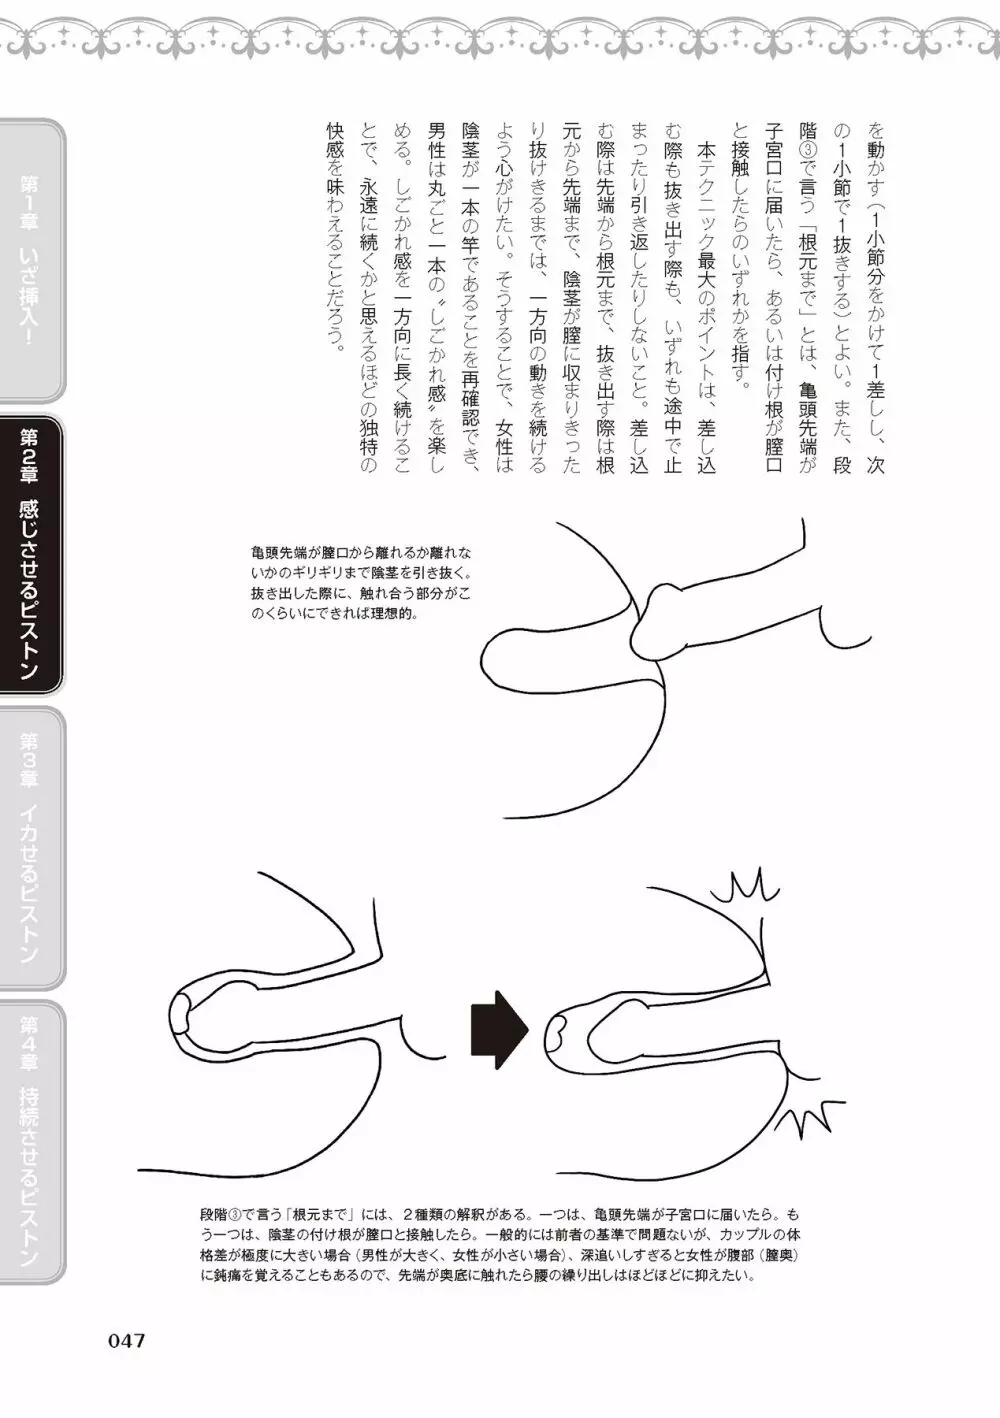 を動かす（1小節分をかけて1差しし、次
の1小節で1抜きする）とよい。また、段
階③で言う「根元まで」とは、亀頭先端が
子宮口に届いたら、あるいは付け根が膣口
と接触したらのいずれかを指す。
本テクニック最大のポイントは、差し込
む際も抜き出す際も、いずれも途中で止
まったり引き返したりしないこと。差し込
む際は先端から根元まで、抜き出す際は根
元から先端まで、陰茎が膣に収まりきった
り抜けきるまでは、一方向の動きを続ける
よう心がけたい。そうすることで、女性は
陰茎が一本の竿であることを再確認でき、
男性は丸ごと一本の〝しごかれ感〟を楽し
める。しごかれ感を一方向に長く続けるこ
とで、永遠に続くかと思えるほどの独特の
快感を味わえることだろう。
亀頭先端が膣口から離れるか離れな
いかのギリギリまで陰茎を引き抜く。
抜き出した際に、触れ合う部分がこ
のくらいにできれば理想的。
段階③で言う「根元まで」には、２種類の解釈がある。一つは、亀頭先端が子宮口に届いたら。も
う一つは、陰茎の付け根が膣口と接触したら。一般的には前者の基準で問題ないが、カップルの体
格差が極度に大きい場合（男性が大きく、女性が小さい場合）、深追いしすぎると女性が腹部（膣奥）
に鈍痛を覚えることもあるので、先端が奥底に触れたら腰の繰り出しはほどほどに抑えたい。
第1章 いざ挿入！
第2章 感じさせるピストン
第3章 イカせるピストン
第4章 持続させるピストン
047